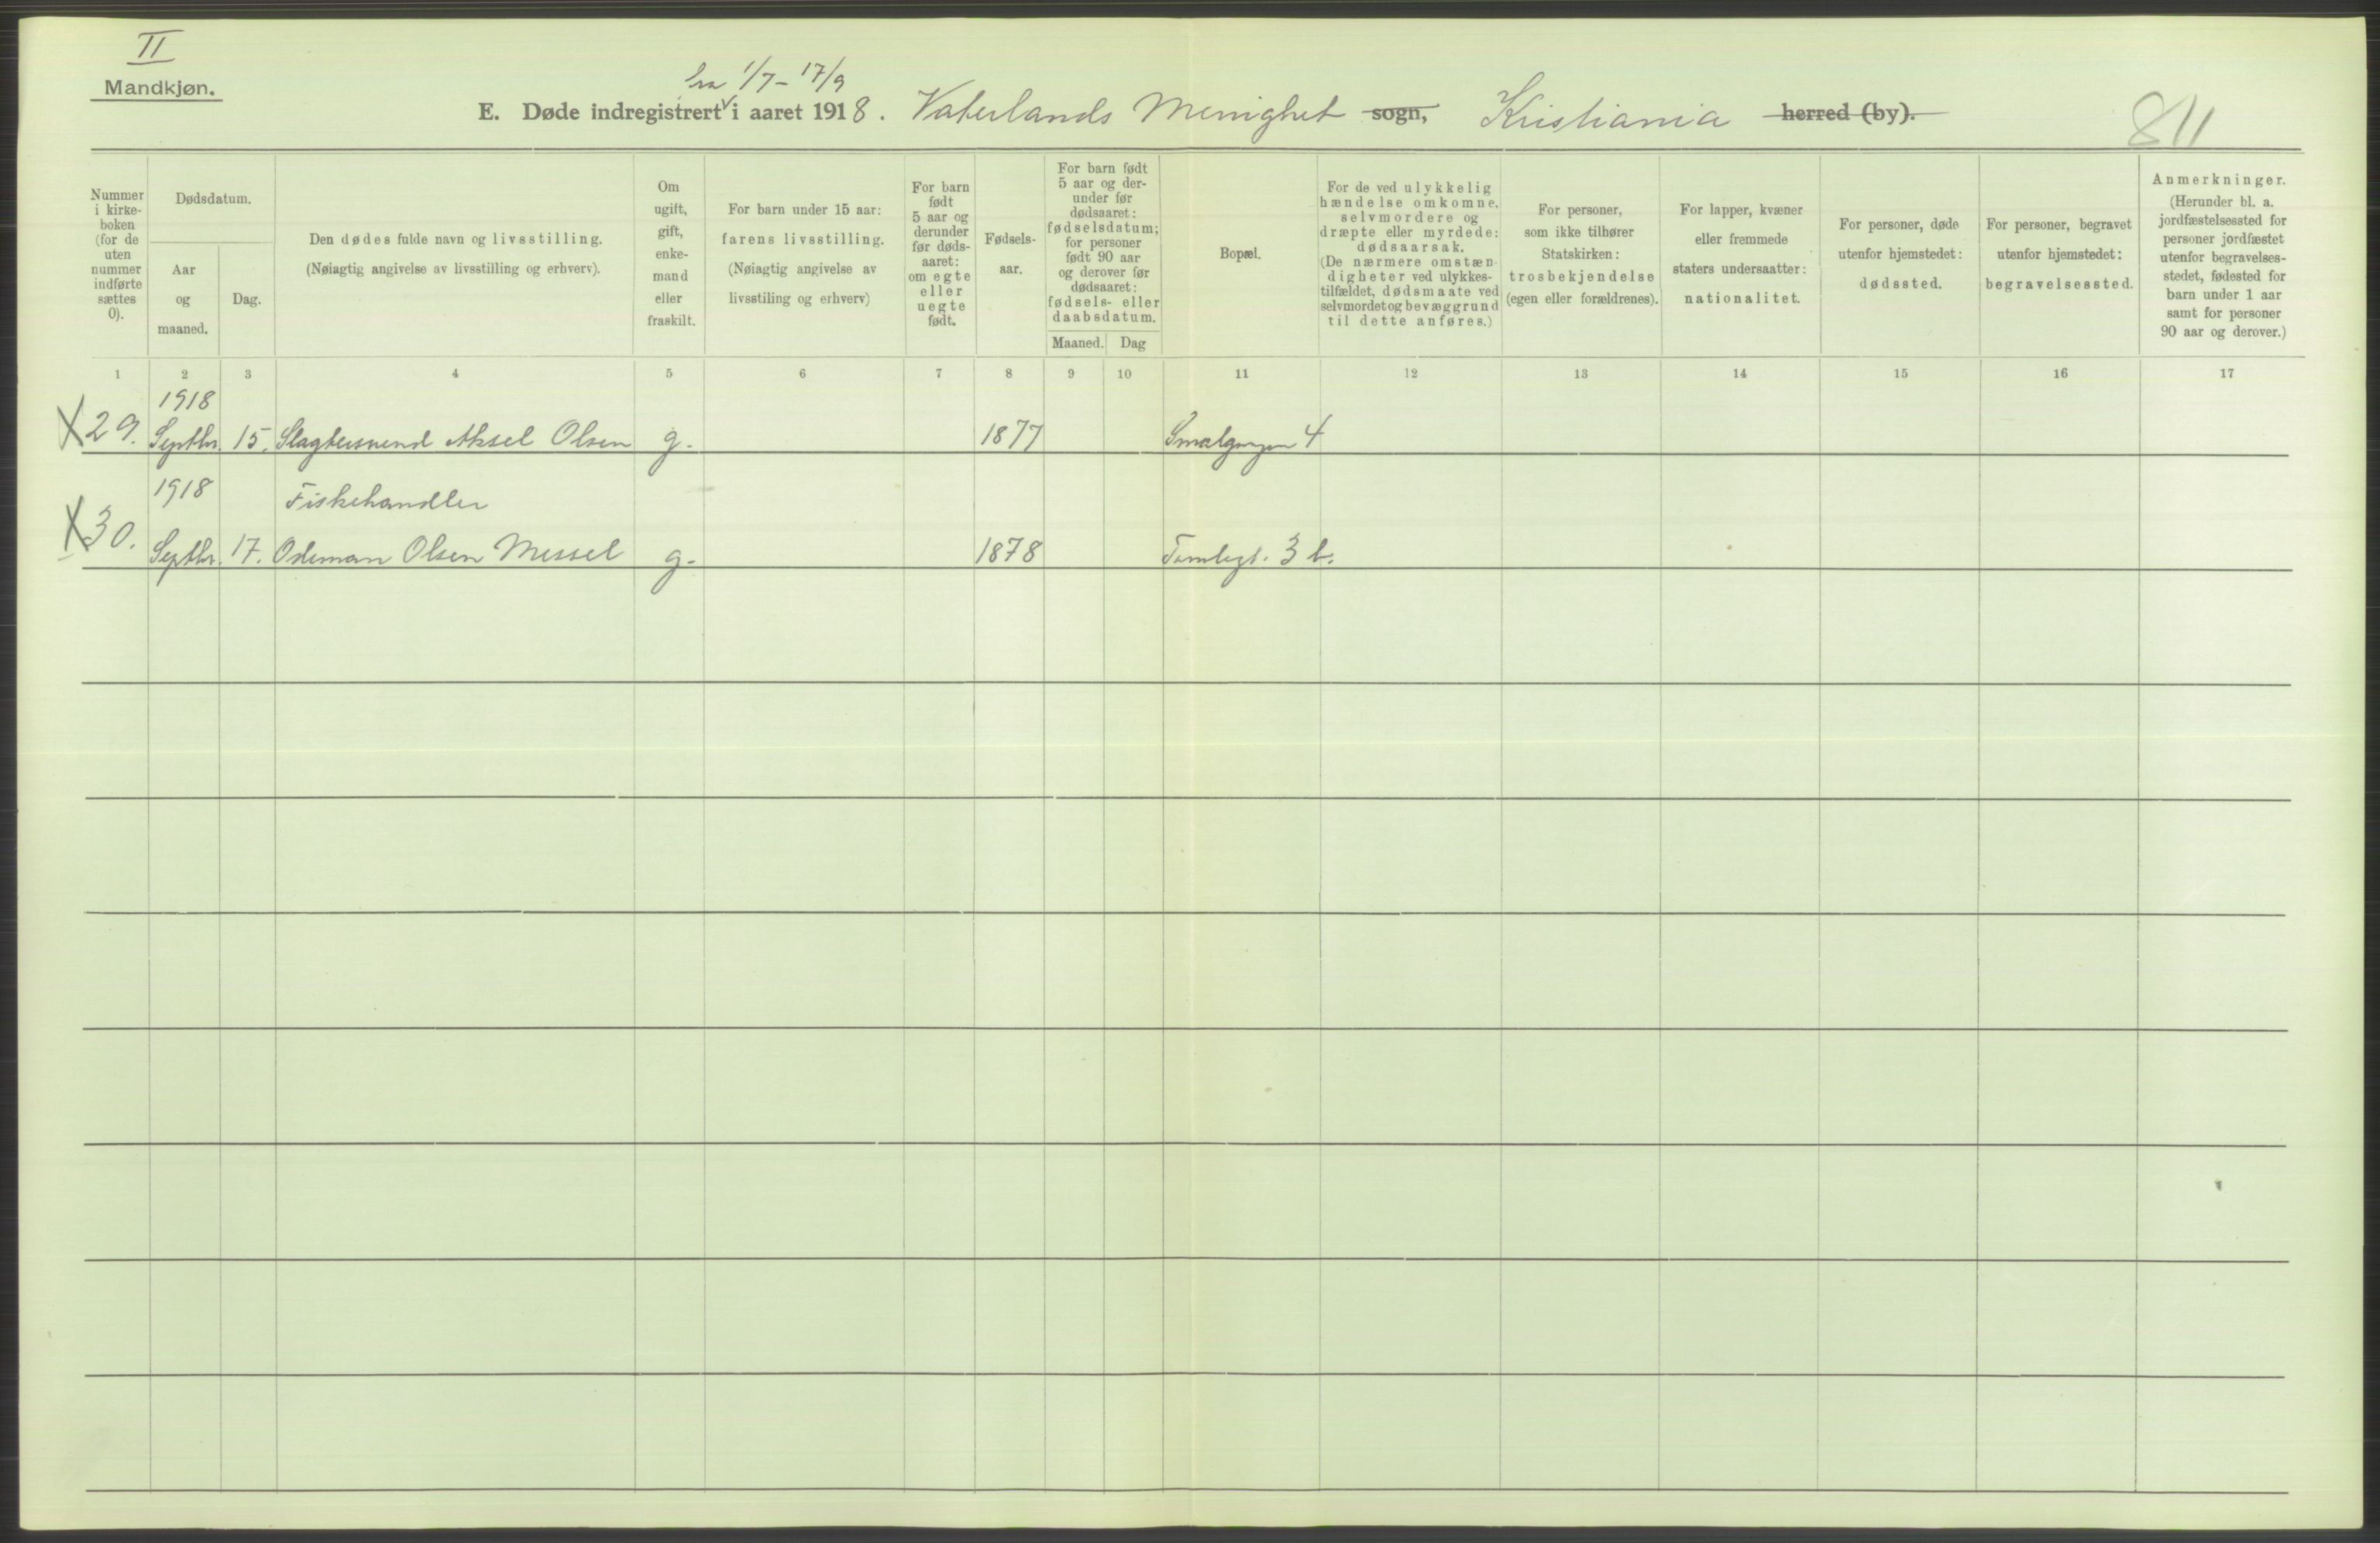 II
Mandkjøn.
fra 1/7 - 17/9
E. Døde indregistrert i aaret 1918. Vaterlands Menighet sogn, Kristiania herred (by).
811
Nummer i kirke-boken (for de uten nummer indførte sættes 0).
Dødsdatum.
Aar og maaned.
Dag.
Den dødes fulde navn og livsstilling.
(Nøiagtig angivelse av livsstilling og erhverv).
Om ugift, gift, enke-mand eller fraskilt.
For barn under 15 aar:
farens livsstilling.
(Nøiagtig angivelse av livsstiling og erhverv)
For barn født 5 aar og derunder før døds-aaret: om egte eller uegte født.
Fødsels-aar.
For barn født 5 aar og der-under før dødsaaret: fødselsdatum; for personer født 90 aar og derover før dødsaaret: fødsels- eller daabsdatum.
Maaned. Dag
Bopæl.
For de ved ulykkelig hændelse omkomne, selvmordere og dræpte eller myrdede: dødsaarsak.
(De nærmere omstæn-digheter ved ulykkes-tilfældet, dødsmaate ved selvmordet og bevæggrund til dette anføres.)
For personer, som ikke tilhører Statskirken: trosbekjendelse (egen eller forældrenes).
For lapper, kvæner eller fremmede staters undersaatter: nationalitet.
For personer, døde utenfor hjemstedet: dødssted.
For personer, begravet utenfor hjemstedet: begravelsessted.
Anmerkninger.
(Herunder bl. a. jordfæstelsessted for personer jordfæstet utenfor begravelses-stedet, fødested for barn under 1 aar samt for personer 90 aar og derover.)
1 2 3 4 5 6 7 8 9 10 11 12 13 14 15 16 17
1918
X 29. Septbr. 15. Slagtersvend Aksel Olsen g. 1877 Smalgangen 4
1918 Fiskehandler
X 30. Septbr. 17. Osleman Olsen Messel g. 1878 3 b.